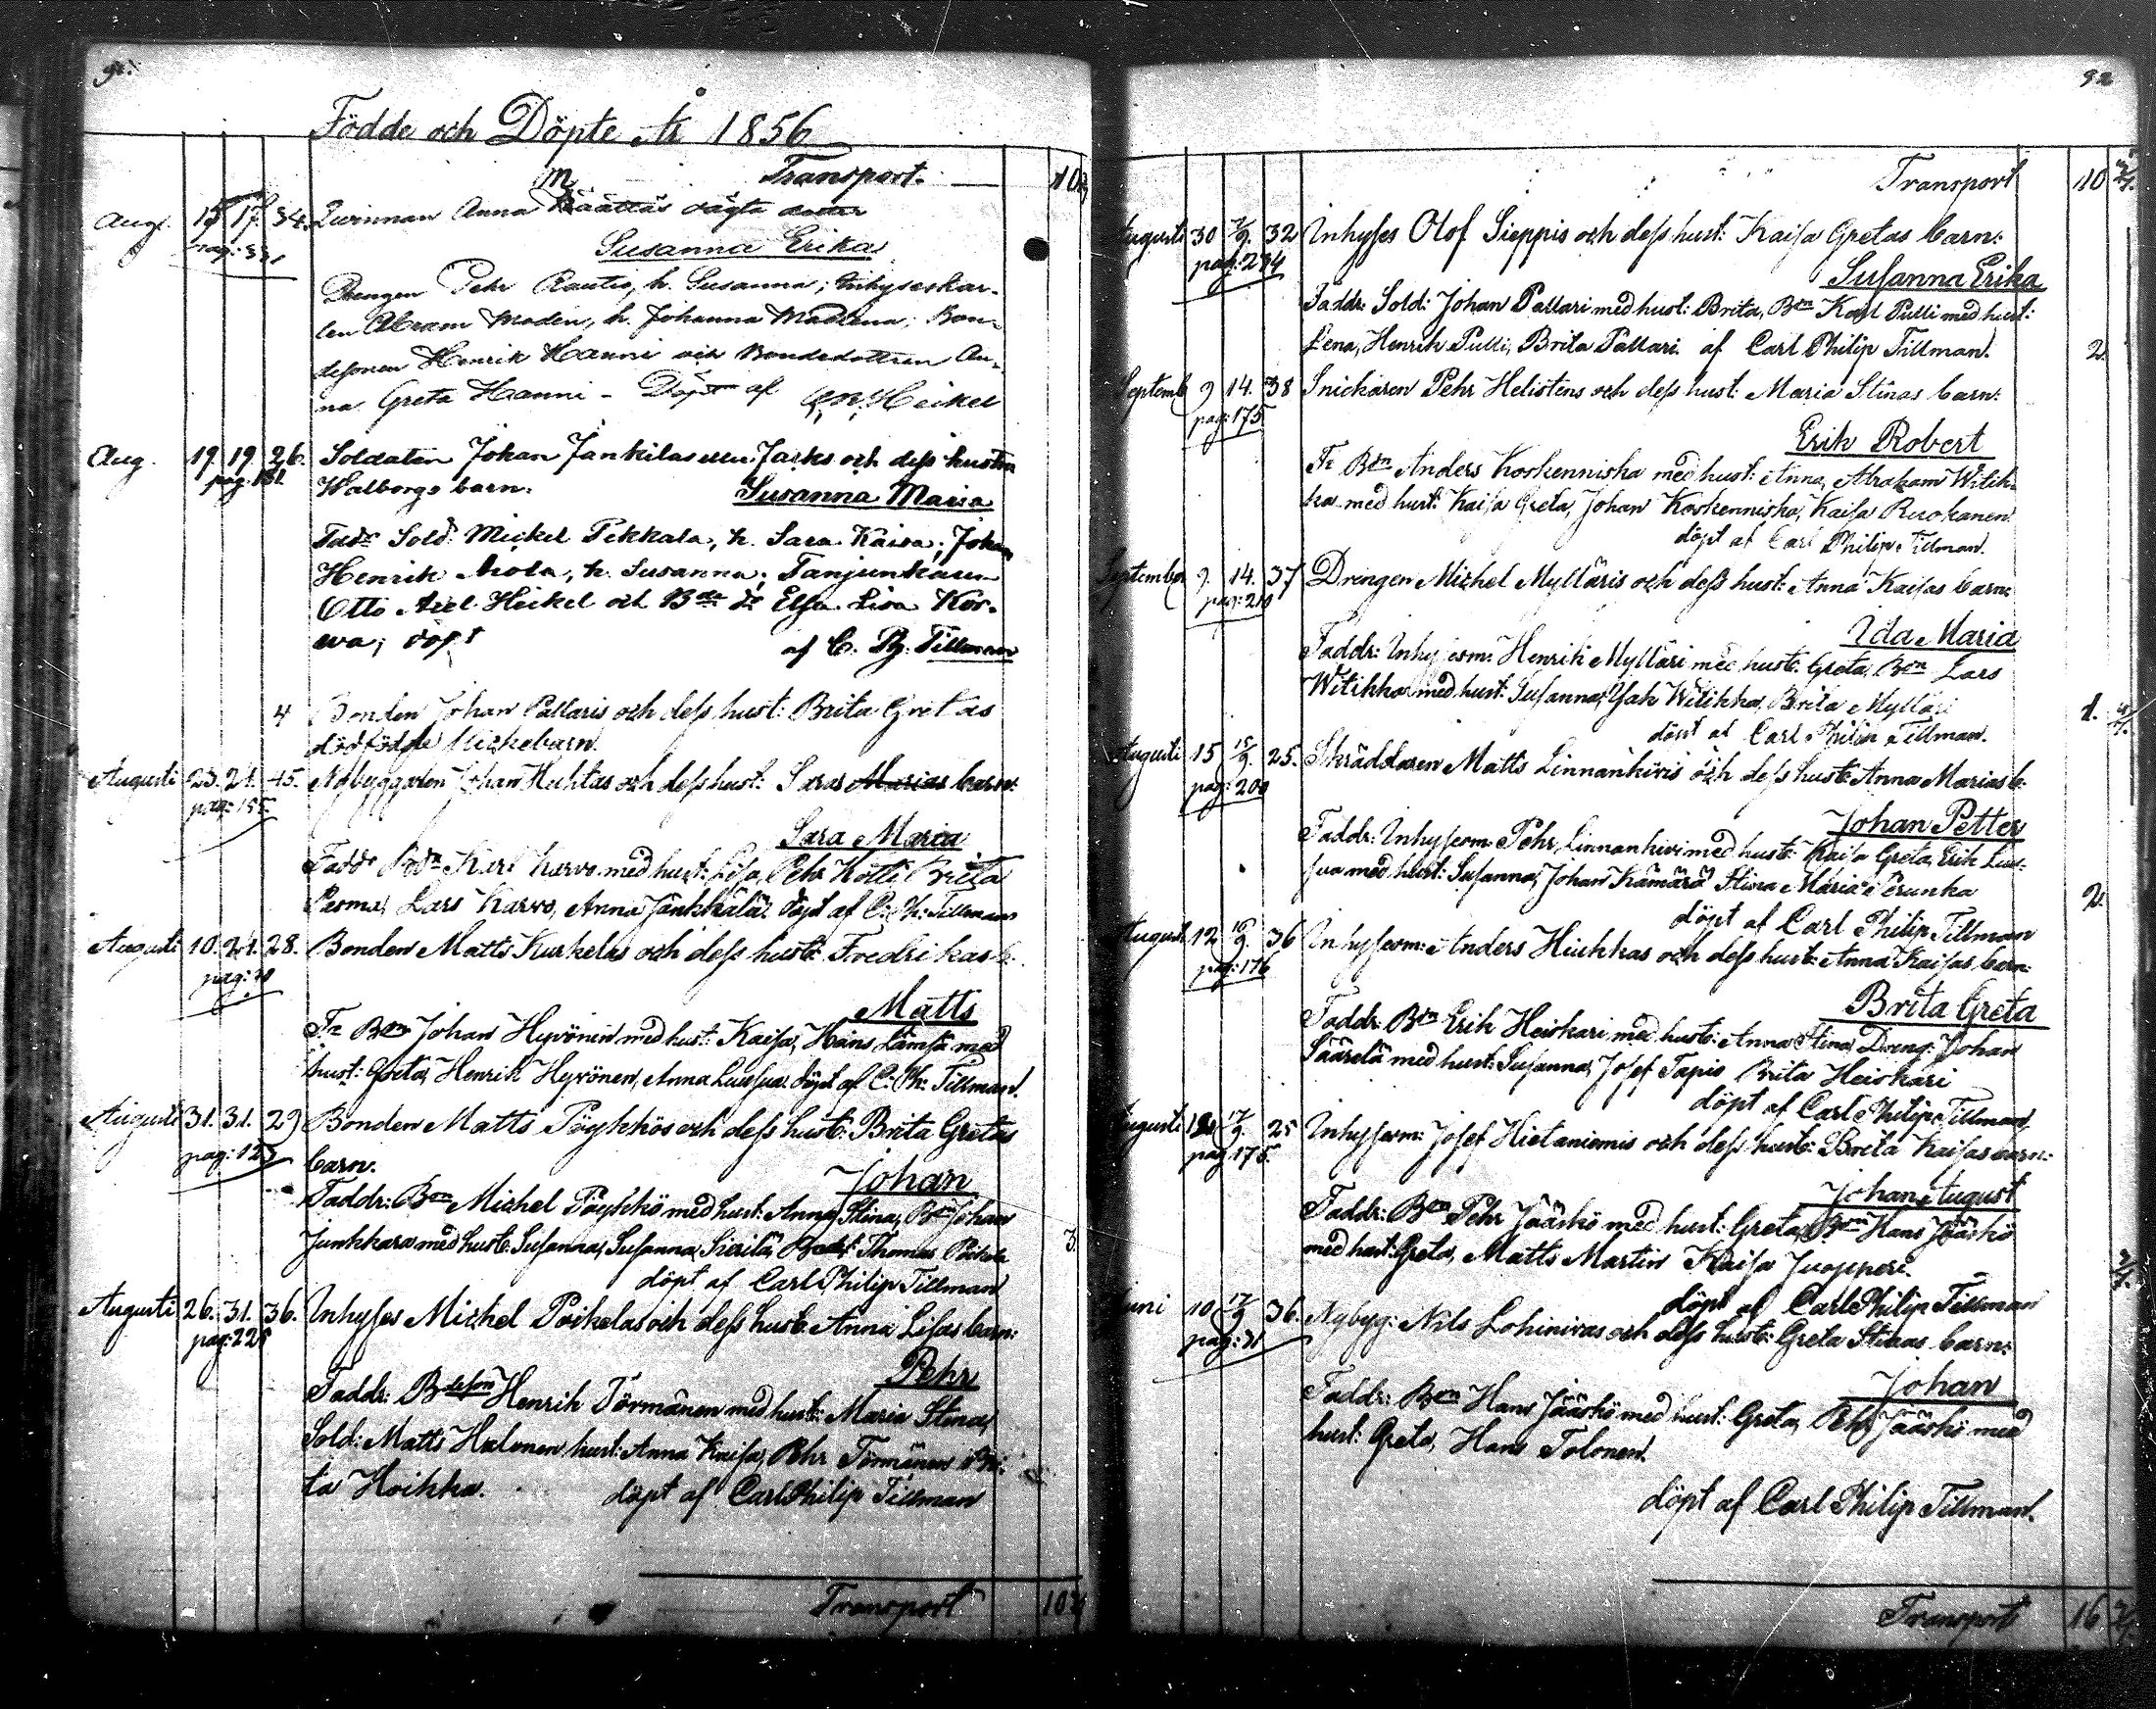 91.
Födde och Döpte År 1856
Transport. 10
Aug. 15 17. 34. Qwinnan Anna Määttäs oägta dotter
Susanna Erika
Drengen Pehr Rautio, h. Susanna; Inhyseskar-
len Abram Moden, h. Johanna Madlena; Bon-
desonen Henrik Hanni och Bondedottren An-
na Greta Hanni - Döpt af Heikel
Aug. 19 19 26. Soldaten Johan Jankilas eller Jacks och dess hustru
pag: 181. Walborgs barn. Susanna Maria
Fadr Sold: Mickel Pekkala, h. Sara Kaisa; Johan
Henrik Aiola, h. Susanna; Tanjunkaren
Otto Axel Heikel och Elsa Lisa Kor-
wa; döpt af C. Ph. Tillman
4 Bonden Johan Pallaris och dess hust: Brita Gretas
dödfödde Mickebarn.
Augusti 23. 24. 45. Nybyggaren Johan Huhtas och dess hust: Saras Marias barn:
Sara Maria
Fadd: Karl Karvo med hust: Lisa, Pehr Kotti Brita
Perma, Lars Karvo, Anna Jänkkälä. döpt af C: Ph: Tillman
Augusti 10. 24. 28. Bonden Matts Kurkelas och dess hust: Fredrikas b:
Matts
Fr Bdn Johan Hyvönen med hust: Kaisa, Hans Lämsä med
hust: Greta, Henrik Hyvönen, Anna Luusua. döpt af C: Ph: Tillman.
Augusti 31. 31. 29 Bonden Matts Pöykkös och dess hust: Brita Gretas
barn. Johan
Faddr: Bdn Michel Pöykkö med hust: Anna Stina, Bdn Johan
Junkkara med hust: Susanna, Susanna Sierilä, Thomas Poikela
döpt af Carl Philip Tillman
Augusti 26. 31. 36. Inhyses Michel Poikelas och dess hust: Anna Lisas barn:
pag: 228 Pehr
Faddr: Bdeson Henrik Törmänen med hust: Maria Stina,
Sold: Matts Halonen hust: Anna Kaisa, Pehr Törmänen Bri-
ta Hoikka. döpt af Carl Philip Tillman
Transport 10
92
Transport 10
Augusti 30 7/9. 32 Inhyses Olof Sieppis och dess hust: Kaisa Gretas barn:
pag: 234 Susanna Erika
Faddr: Sold: Johan Pallari med hust: Brita, Bdn Karl Pulli med hust:
Lena, Henrik Pulli, Brita Pallari. af Carl Philip Tillman. 2.
Septemb 9 14. 38 Snickaren Pehr Helistens och dess hust: Maria Stinas barn:
pag: 175 Erik Robert
Fr Bdn Anders Koskenniska med hust: Anna, Abraham Witik-
ka med hust: Kaisa Greta, Johan Koskenniska, Kaisa Ruokanen.
döpt af Carl Philip Tillman.
September 9. 14. 37 Drengen Michel Mylläris och dess hust: Anna Kaisas barn:
pag: 210 Ida Maria
Faddr: Inhysesm: Henrik Mylläri med hust: Greta, Bdn Lars
Witikka med hust: Susanna, Isak Witikka, Brita Mylläri
döpt af Carl Philip Tillman. 1.
Augusti 15 15/9. 25. Skräddaren Matts Linnankivis och dess hust: Anna Marias b:
pag: 200 Johan Petter
Faddr: Inhysesm: Pehr Linnankivi med hust: Kaisa Greta, Erik Luu-
sua med hust: Susanna, Johan Kämärä Stina Maria Perunka
döpt af Carl Philip Tillman 2.
Augusti 12 16/9. 36 Inhysesm: Anders Hiukkas och dess hust: Anna Kaisas barn:
pag: 176 Brita Greta
Faddr: Bdn Erik Heiskari med hust: Anna Stina, Dreng: Johan
Säärelä med hust: Susanna, Josef Tapio Brita Heiskari
döpt af Carl Philip Tillman
Augusti 17/9. 25 Inhysesm: Josef Hietaniemis och dess hust: Brita Kaisas barn:
pag: 175. Johan August
Faddr: Bdn Pehr Jääskö med hust: Greta, Bdn Hans Jääskö
med hust: Greta, Matts Martin Kaisa Juopperi.
döpt af Carl Philip Tillman
Juni 10 17/9 36. Nybyg: Nils Lohinivas och dess hust: Greta Stinas barn:
pag: 31 Johan
Faddr: Bdn Hans Jääskö med hust: Greta, Pehr Jääskö med
hust: Greta, Hans Tolonen.
döpt af Carl Philip Tillman.
Transport 16